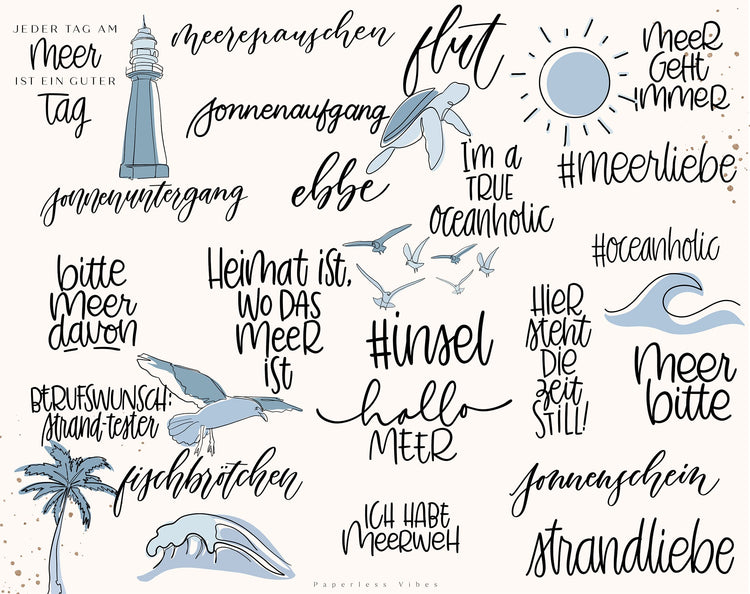 JEDER TAG AM
Meer
IST EIN GUTER
Tag
meeresrauschen
flut
MEER
GEHT
IMMER
sonnenaufgang
I'm a
TRUE
oceanholic
#meerliebe
sonnenuntergang
ebbe
#oceanholic
bitte
meer
davon
Heimat ist,
WO DAS
MEER
ist
#insel
HIER
steht
DIE
Zeit
STILL!
Meer
bitte
BERUFSWUNSCH:
strand-tester
hallo
MEER
fischbrötchen
sonnenschein
ICH HABE
MEERWEH
strandliebe
Paperless Vibes